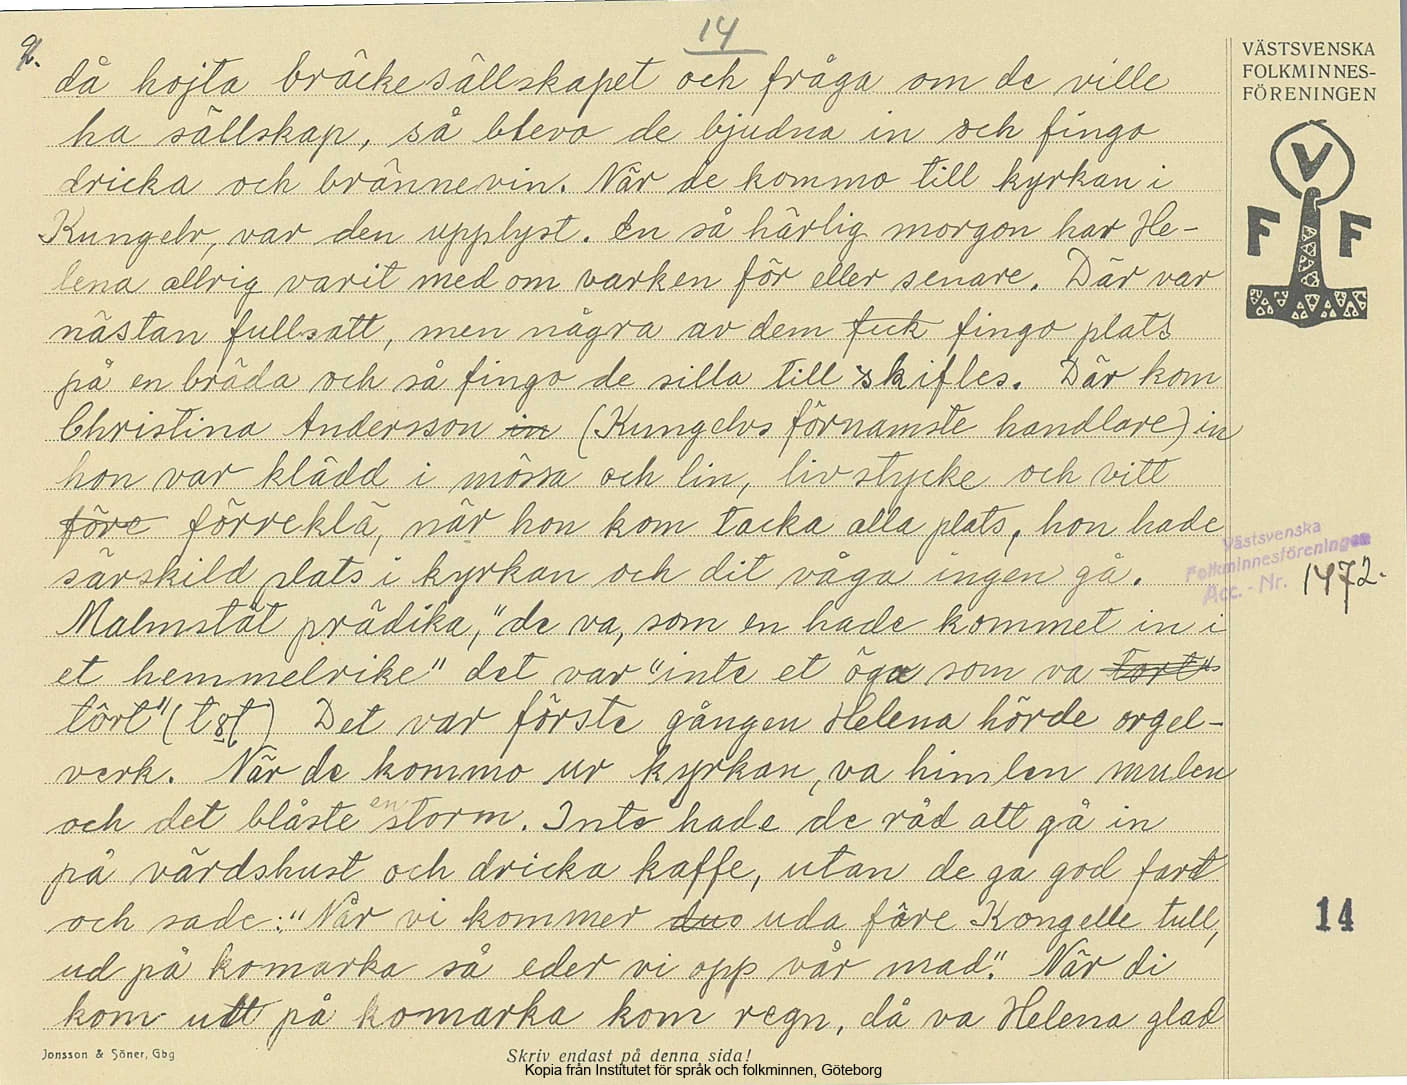 14
VÄSTSVENSKA
FOLKMINNES-
FÖRENINGEN
då hojta bräckesällskapet och fråga om de ville
ha sällskap, så blevo de bjudna in och fingo
dricka och brännevin. När de kommo till kyrkan i
Kungelv, var den upplyst. En så härlig morgon har He-
lena allrig varit med om varken för eller senare. Där var
nästan fullsatt, men några av dem fick fingo plats
på en bräda och så fingo de silla till skifles. Där kom
Christina Andersson in (Kungelvs förnamste handlare) in
hon var klädd i mössa och lin, livstycke och vitt
före förreklä, när hon kom tacka alla plats, hon hade
särskild plats i kyrkan och dit våga ingen gå.
Malmstät prädika, "de va, som en hade kommet in i
et hemmelrike" det var "inte et öga som va tort"
tôrt" ( ) Det var förste gången Helena hörde orgel-
verk. När de kommo ur kyrkan, va himlen mulen
och det blåste en storm. Inte hade de råd att gå in
på värdshust och dricka kaffe, utan de ga god fart
och sade: "När vi kommer uda färe Kongelle tull,
ud på komarka så eder vi opp vår mad." När di
kom utt på komarka kom regn, då va Helena glad
V
F F
Västsvenska
Folkminnesföreningen
Acc. - Nr. 1472.
14
Jonsson & Söner, Gbg
Skriv endast på denna sida!
Kopia från Institutet för språk och folkminnen, Göteborg